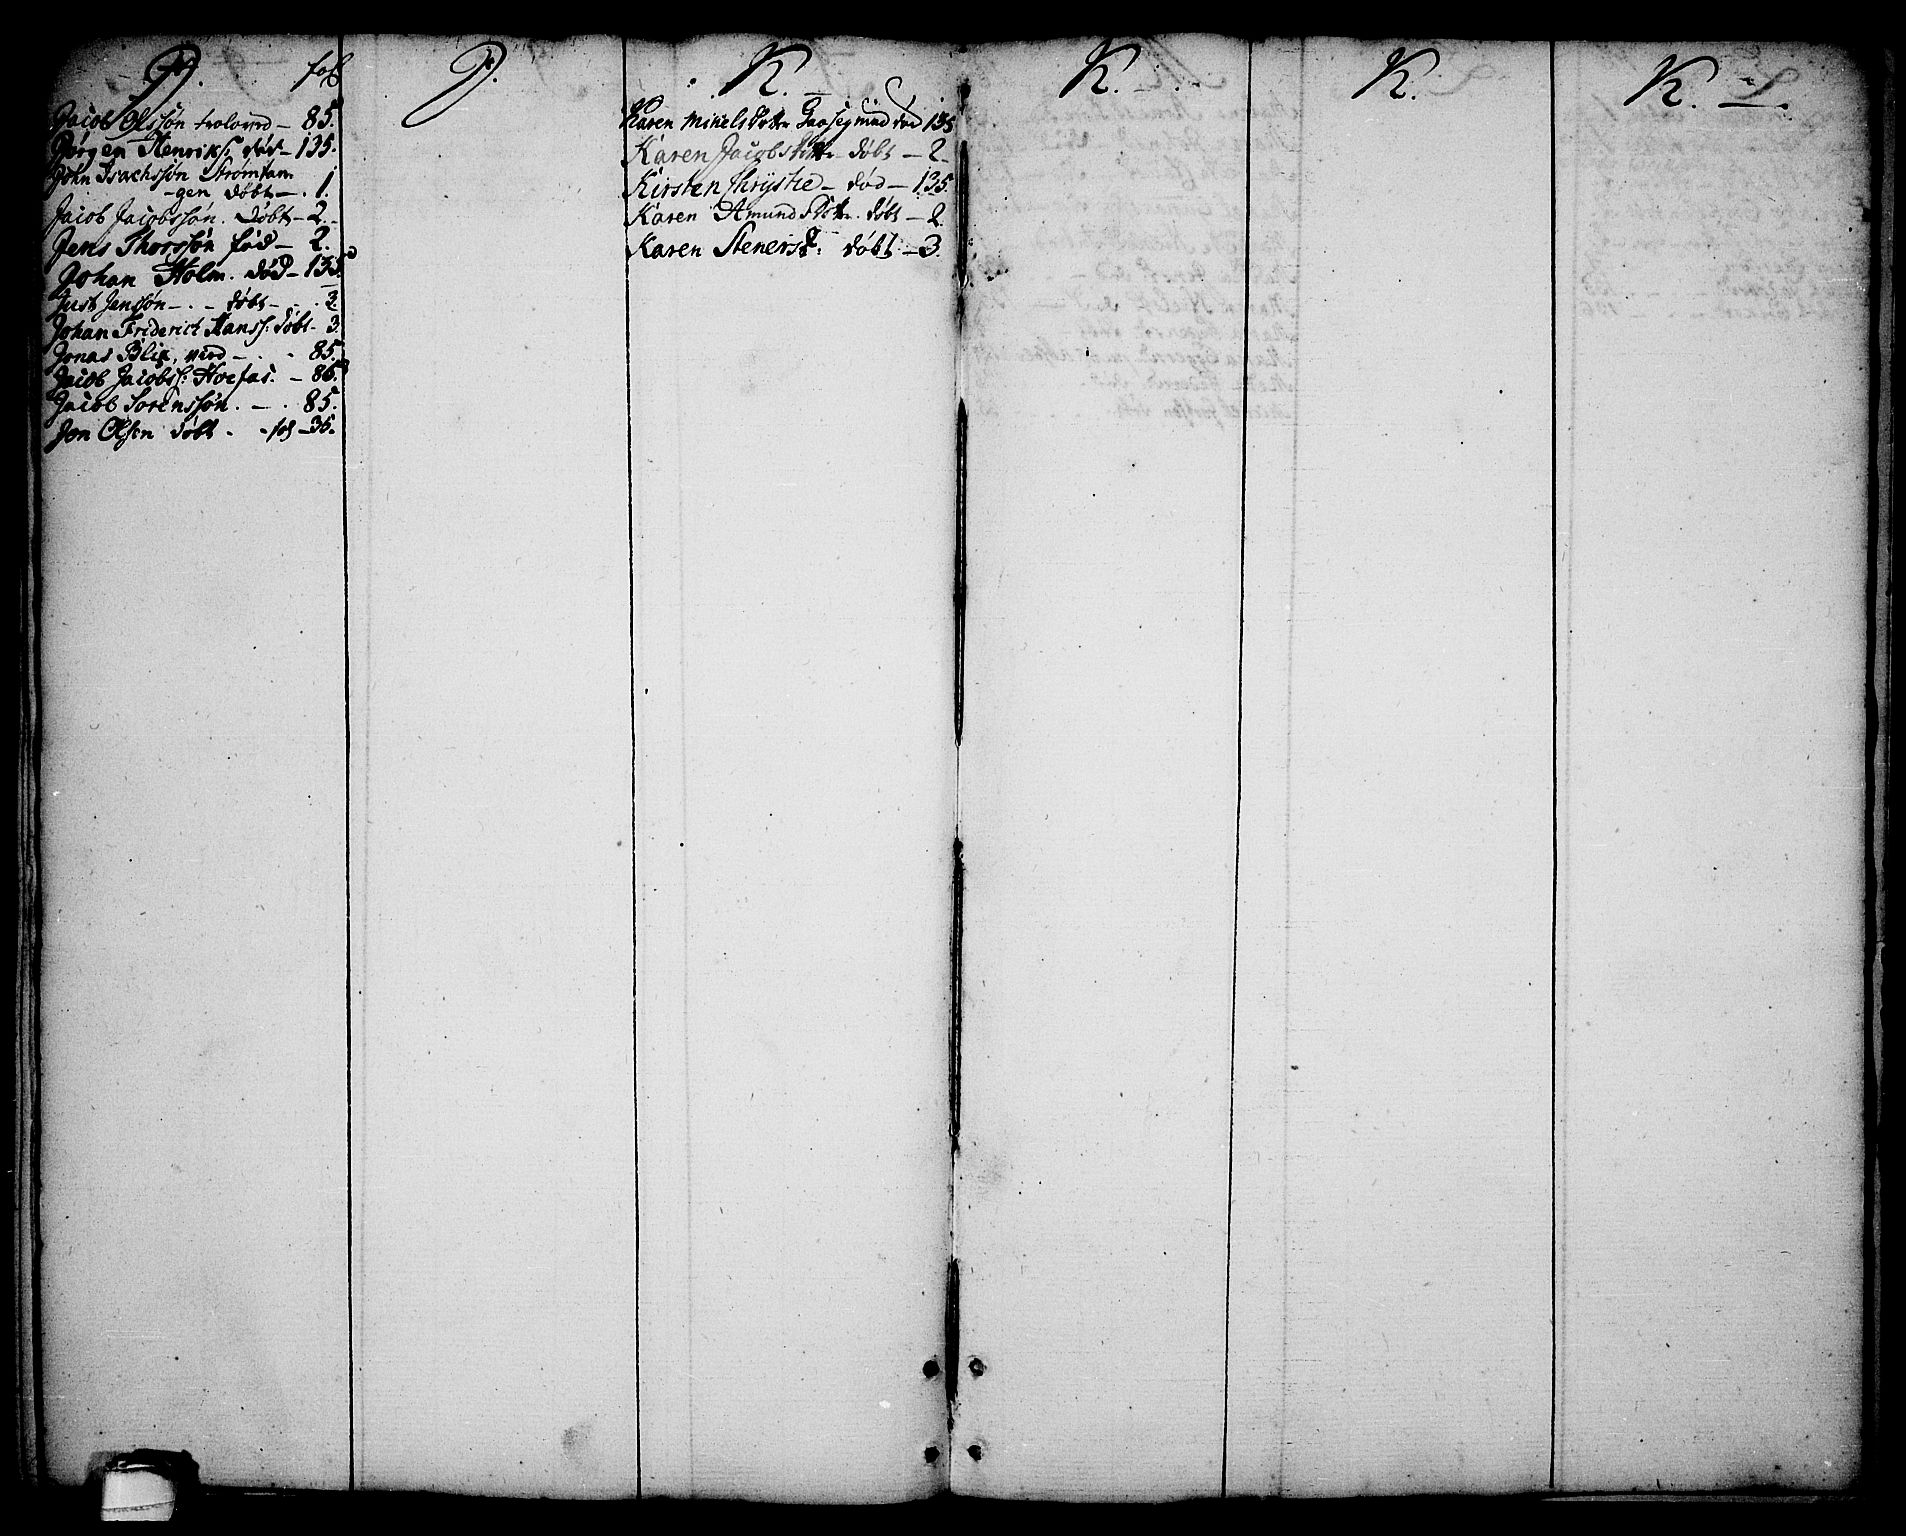 J. fol
Jacob Olssøn trolovd – 85.
Jørgen Henriks: død – 135.
John Isachssøn Strømtan
-gen døbt – . 1.
Jacob Jacobssøn. døbt – 2.
Jens Thorssøn fød – 2.
Johan Holm. død – 135.
Just Jenssøn – . – døbt – . 3.
Johan Friderich Hanss: døbt – 3.
Jonas Blix, vied – . . 85.
Jacob Jacobss: – 86.
Jacob Sørenssøn. – . 85.
Jon Olsen døbt - - fol – 35.
J.
K.
Karen Mikels Datter død 135
Karen Jacobsdatter døbt – 2.
Kirsten Thrystie – død – 135.
Karen Amunds Dtr. døbt – 2.
Karen Steners D: døbt – 3.
K.
K.
K.